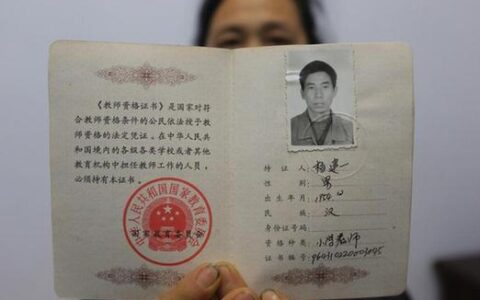 《教师资格证书》是国家对符
合教师资格条件的公民依法授于教
师资格的法定凭证。在中华人民共
和国境内的各级各类学校或者其他
教育机构中担任教师工作的人员，
必须持有本证书。
中华人民共和国国家教育委员会
国家教育委员会
持证人：杨建一
性别：男
出生年月：1954.
民族：汉
身份证号码：
资格种类：小学教师
证书编号：